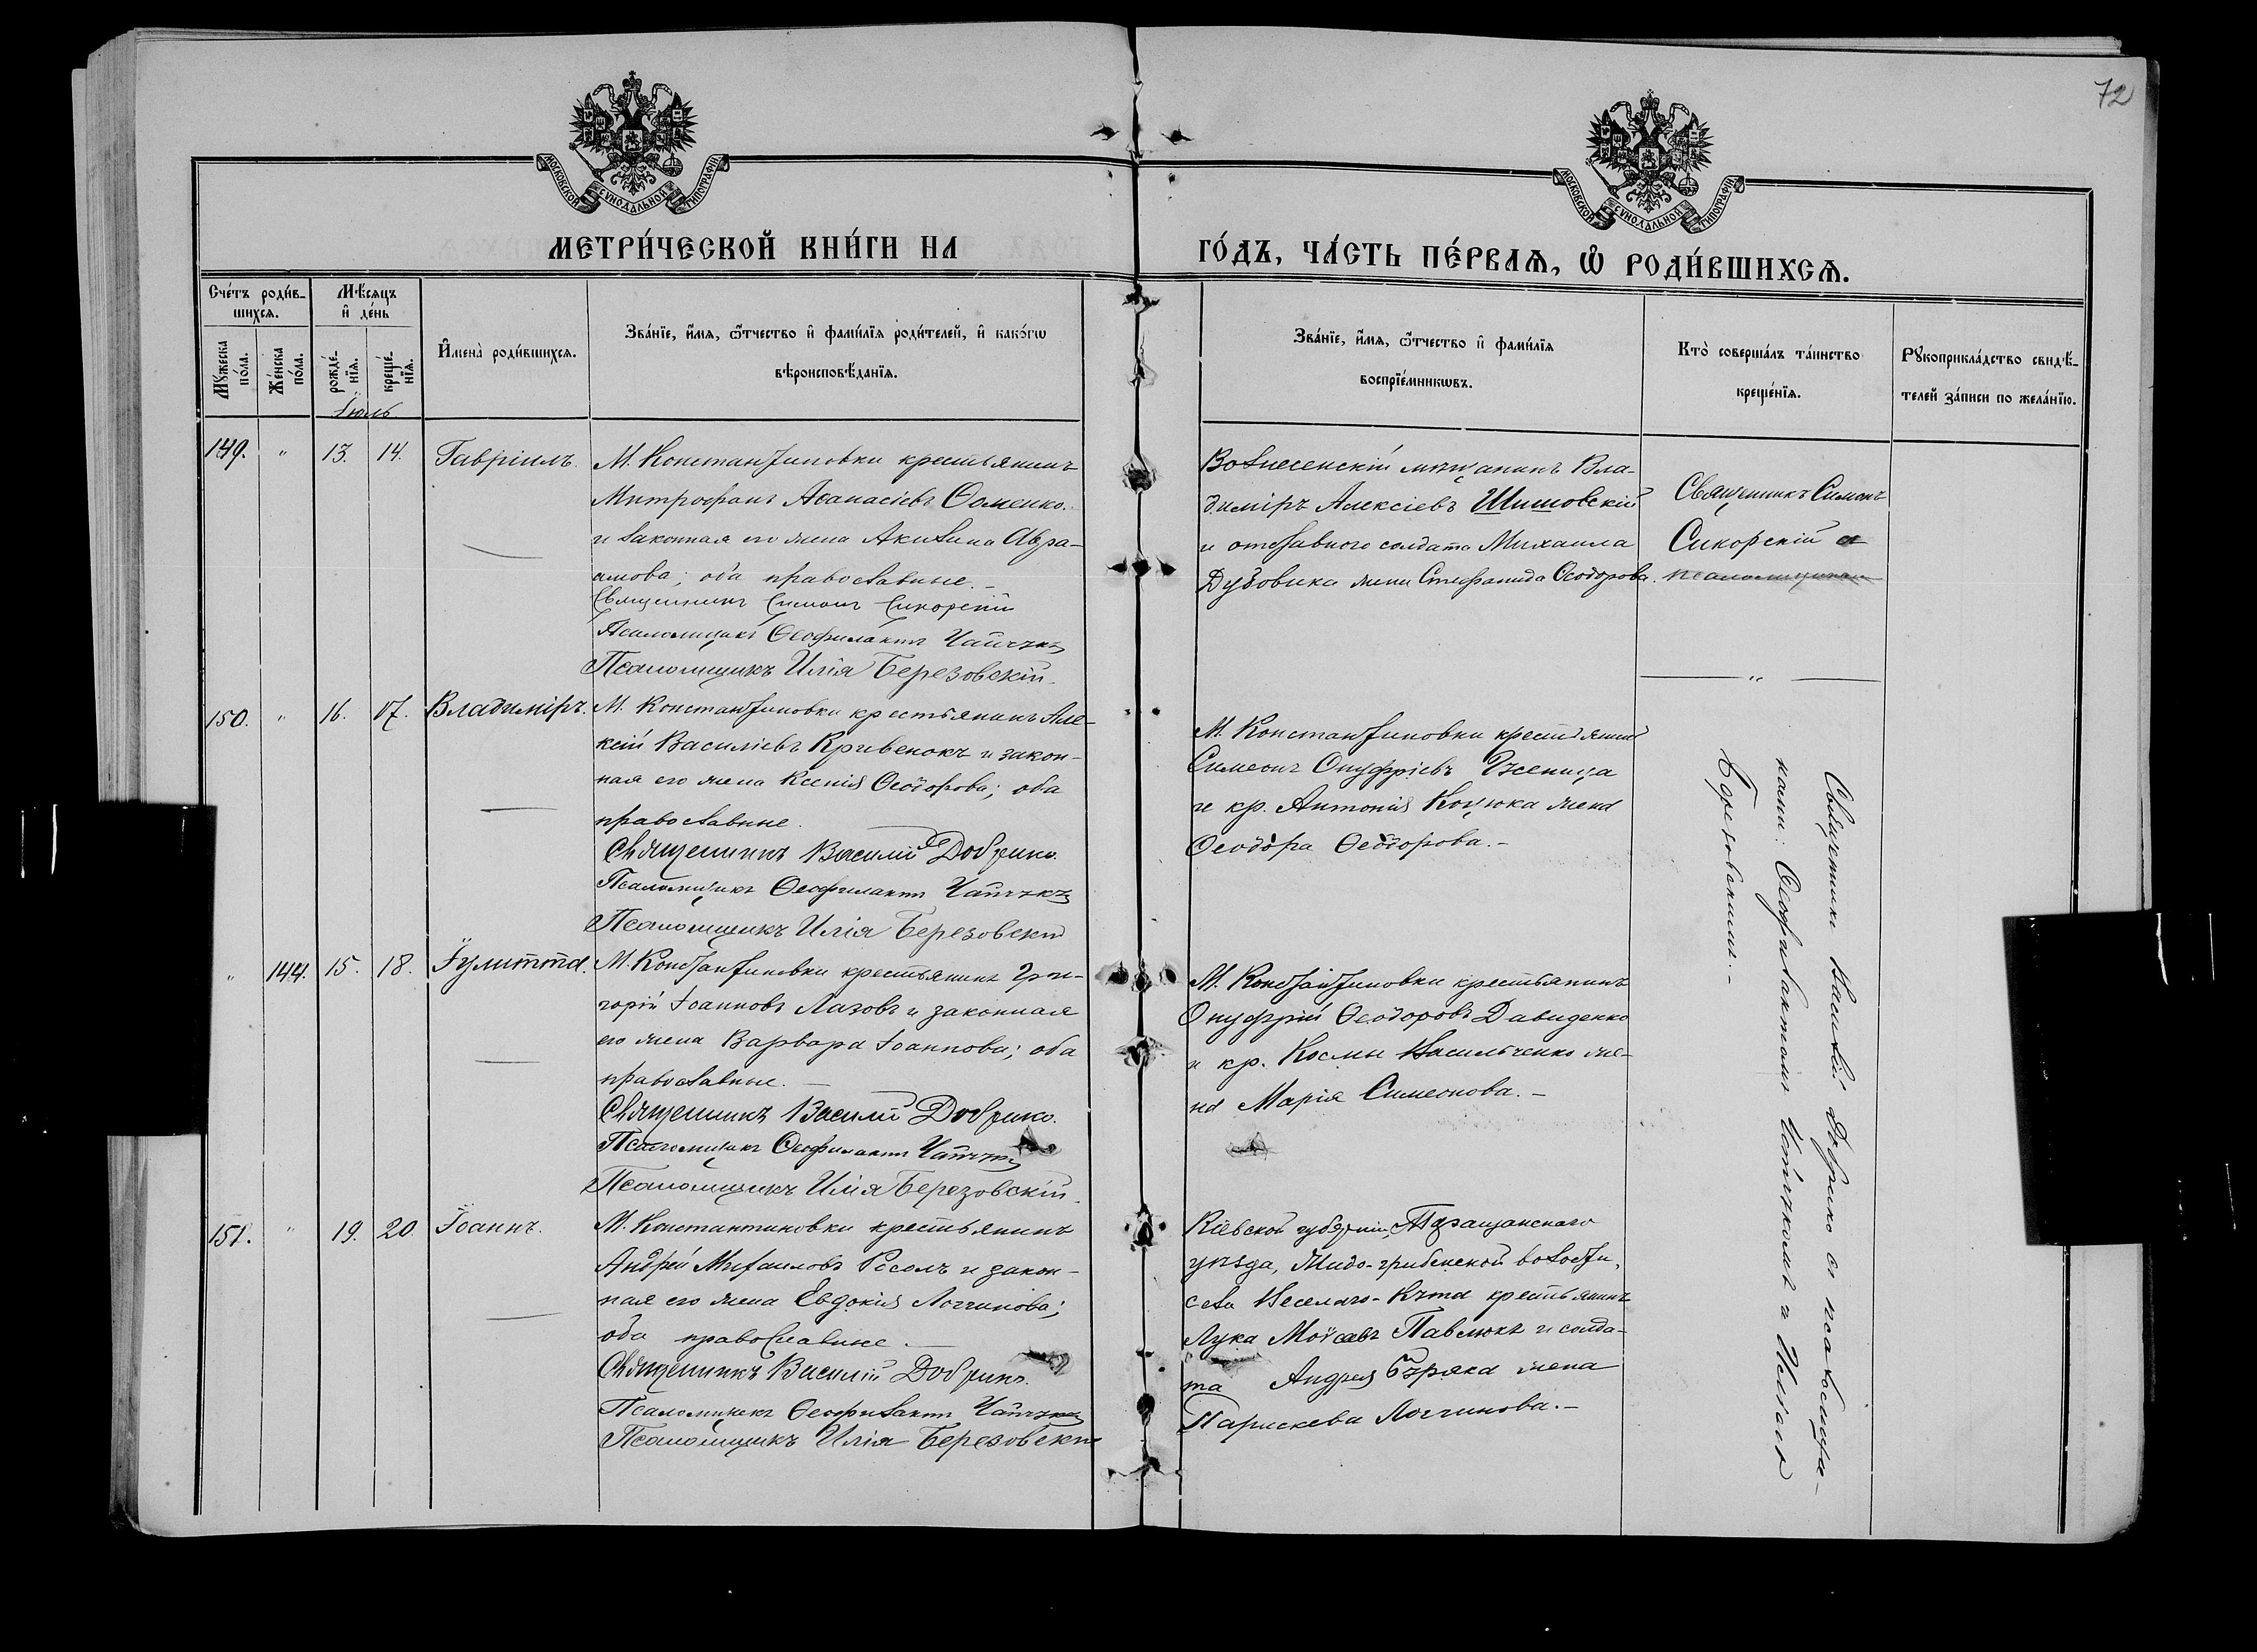 72
МОСКОВСКОЙ СУНОДАЛЬНОЙ ТИПОГРАФІИ
МОСКОВСКОЙ СУНОДАЛЬНОЙ ТИПОГРАФІИ
МЕТРИ́ЧЕСКОЙ КНИ́ГИ НА
ГО́ДЪ, ЧА́СТЬ ПЕ́РВАѦ, Ѽ РОДИ́ВШИХСѦ.
Сче́тъ роди́в-
шихсѧ.
Мѣ́сяцъ
и҆ де́нь
Мꙋ́жеска по́ла.
Же́нска по́ла.
рожде́-
нїѧ.
креще́-
нїѧ.
И҆мена̀ роди́вшихсѧ.
Зва́нїе, и҆́мѧ, ѻ҆́тчество и҆ фами́лїѧ роди́телей, и҆ како́гѡ
вѣроисповѣ́данїѧ.
Зва́нїе, и҆́мѧ, ѻ҆́тчество и҆ фами́лїѧ
воспрїе́мникѡвъ.
Кто̀ соверша́лъ та́инство
креще́нїѧ.
Рꙋкоприкла́дство свидѣ́-
телей за́писи по жела́нїю.
Іюль
149. " 13. 14. Гавріилъ.
М. Константиновки крестьянинъ
Митрофанъ Аѳанасіевъ Ѳоменко
и законная его жена Акилина Авра-
амова; оба православные.
Священникъ Симонъ Сикорскій
Псаломщикъ Ѳеофилактъ
Псаломщикъ Илія Березовскій
Вознесенскій мѣщанинъ Вла-
диміръ Алексіевъ Шишовскій
и отставного солдата Михаила
Дубовика жена Стефанида Ѳеодорова.
Священникъ Симонъ
Сикорскій и
псаломщикам
150. " 16. 17. Владиміръ.
М. Константиновки крестьянинъ Але-
ксій Василіевъ Кривенокъ и закон-
ная его жена Ксенія Ѳеодорова; оба
православные.
Священникъ Василій Добрыко.
Псаломщикъ Ѳеофилактъ
Псаломщикъ Илія Березовскій
М. Константиновки крестьянинъ
Симеонъ Онуфріевъ
и кр. Антонія Коцюка жена
Ѳеодора Ѳеодорова.
" 144. 15. 18. Іулитта.
М. Константиновки крестьянинъ Гри-
горій Іоанновъ Лазовъ и законная
его жена Варвара Іоаннова; оба
православные.
Священникъ Василій Добрыко.
Псаломщикъ Ѳеофилактъ
Псаломщикъ Илія Березовскій
М. Константиновки крестьянинъ
Онуфрій Ѳеодоровъ Давиденко
и кр. Космы Васильченко же-
на Марія Симеонова.
151. " 19. 20. Іоаннъ.
М. Константиновки крестьянинъ
Андрей Михаиловъ Росолъ и закон-
ная его жена Евдокія Логгинова;
оба православные
Священникъ Василій Добрыко.
Псаломщикъ Ѳеофилактъ
Псаломщикъ Илія Березовскій
Кіевской губерніи, Таращанскаго
уѣзда, волости,
села Веселаго-Кута крестьянинъ
Лука Моѵсеевъ Павлюкъ и солда-
та Андрея жена
Параскева Логгинова.
Священникъ Василій Добрыко съ псаломщи-
ками: Ѳеофилактомъ и Иліею
Березовскимъ.